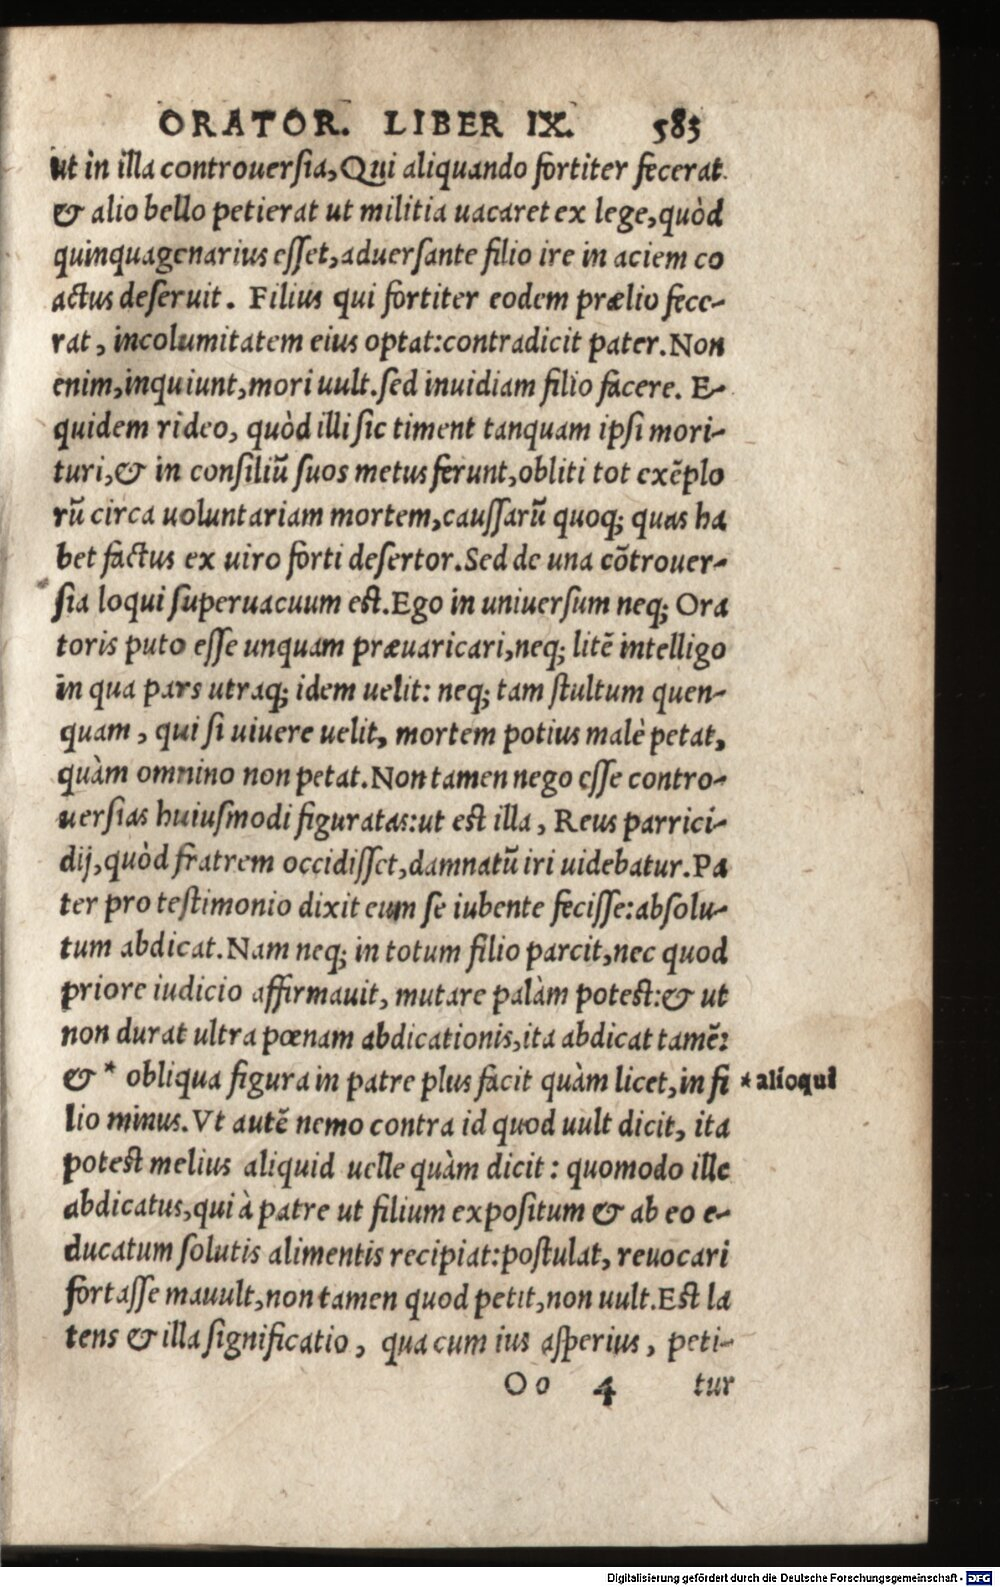 ORATOR. LIBER IX. 583
ut in illa controuersia, Qui aliquando fortiter fecerat.
& alio bello petierat ut militia uacaret ex lege, quòd
quinquagenarius esset, aduersante filio ire in aciem co
actus deseruit. Filius qui fortiter eodem prælio fece-
rat, incolumitatem eius optat: contradicit pater. Non
enim, inquiunt, mori uult. sed inuidiam filio facere. E-
quidem rideo, quòd illi sic timent tanquam ipsi mori-
turi, & in consiliū suos metus ferunt, obliti tot exẽplo
rū circa uoluntariam mortem, caussarū quoq; quas ha
bet factus ex uiro forti desertor. Sed de una cõtrouer-
sia loqui superuacuum est. Ego in uniuersum neq; Ora
toris puto esse unquam præuaricari, neq; litẽ intelligo
in qua pars utraq; idem uelit: neq; tam stultum quen-
quam, qui si uiuere uelit, mortem potius malè petat,
quàm omnino non petat. Non tamen nego esse contro-
uersias huiusmodi figuratas: ut est illa, Reus parrici-
dij, quòd fratrem occidisset, damnatū iri uidebatur. Pa
ter pro testimonio dixit eum se iubente fecisse: absolu-
tum abdicat. Nam neq; in totum filio parcit, nec quod
priore iudicio affirmauit, mutare palàm potest: & ut
non durat ultra pœnam abdicationis, ita abdicat tamẽ:
& * obliqua figura in patre plus facit quàm licet, in fi * alioqui
lio minus. Vt autẽ nemo contra id quod uult dicit, ita
potest melius aliquid uelle quàm dicit: quomodo ille
abdicatus, qui à patre ut filium expositum & ab eo e-
ducatum solutis alimentis recipiat: postulat, reuocari
fortasse mauult, non tamen quod petit, non uult. Est la
tens & illa significatio, qua cum ius asperius, peti-
Oo 4 tur
Digitalisierung gefördert durch die Deutsche Forschungsgemeinschaft - DFG